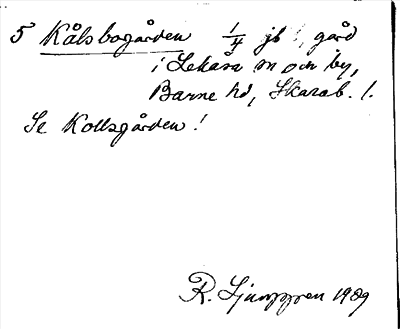 5 Kålsbogården 1/4 jb, gård
i Lekåsa sn och by,
Barne hd, Skarab. l.
Se Kollsgården!
R. Ljunggren 1909